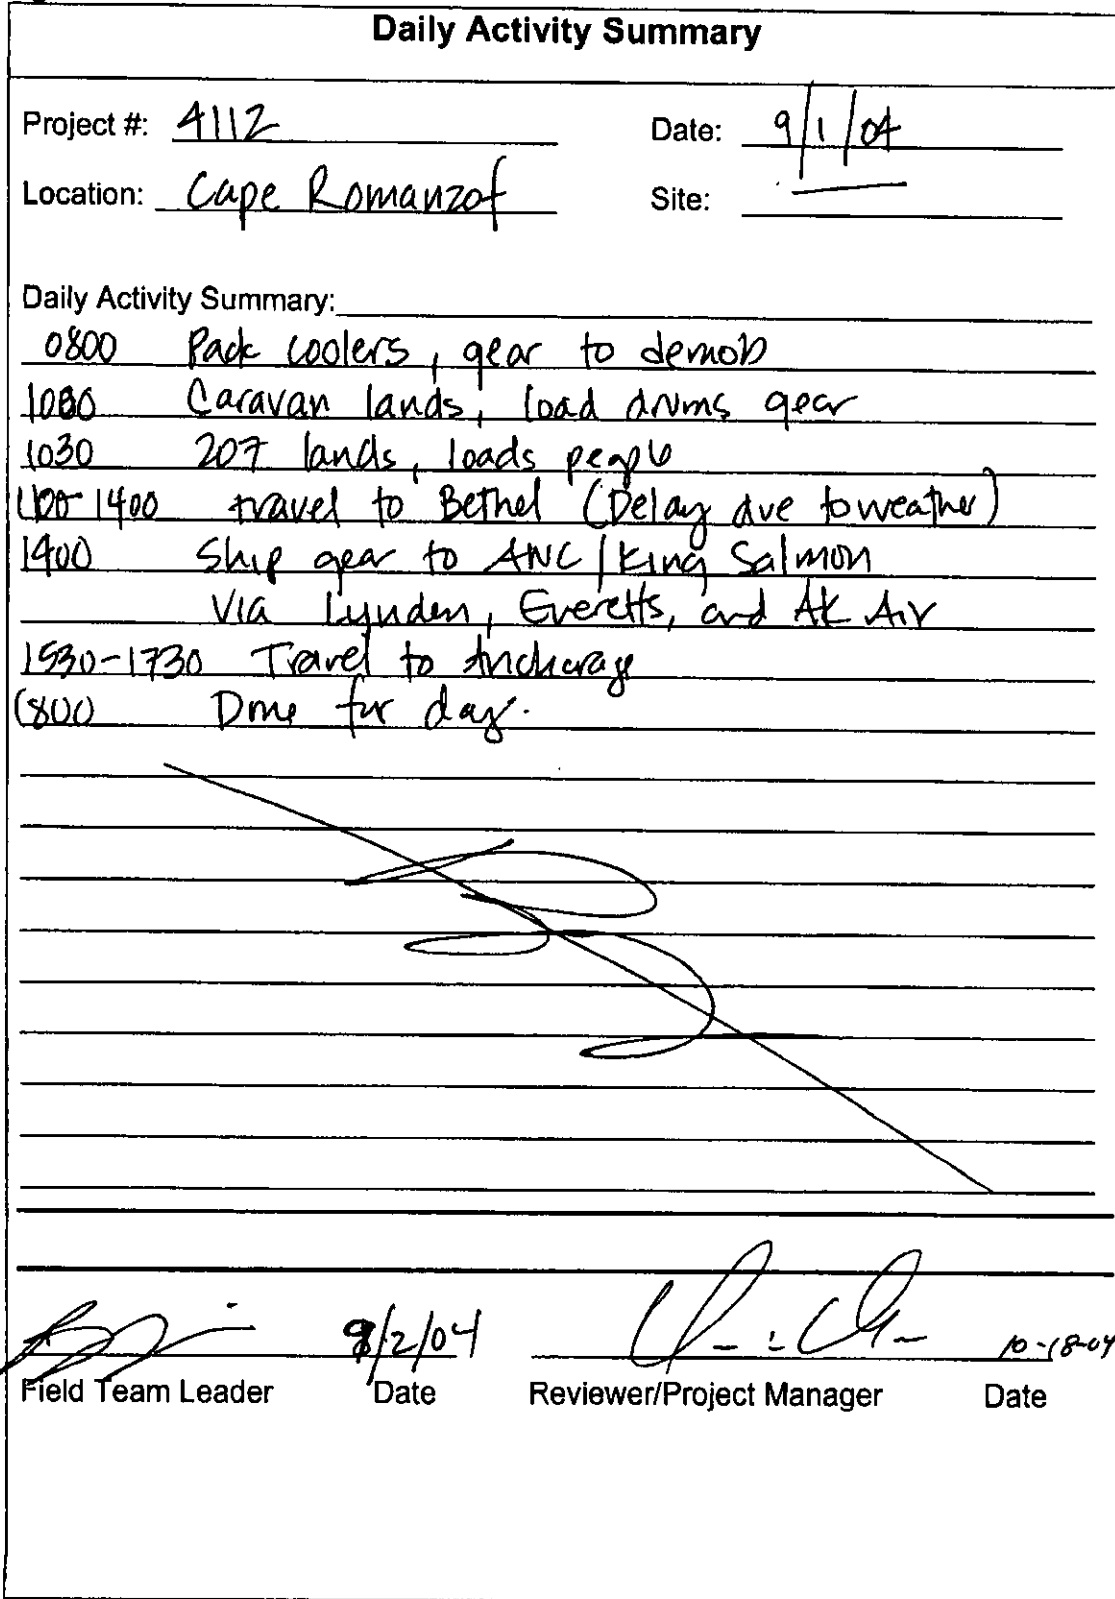 Daily Activity Summary
Project #: 4112 Date: 9/1/04
Location: Cape Romanzof Site: —
Daily Activity Summary:
0800 Pack coolers, gear to demob
1000 Caravan lands, load drums gear
1030 207 lands, loads people
1400 travel to Bethel (Delay due to weather)
1400 Ship gear to ANC/King Salmon
Via Lynden, Everetts, and AK Air
1530-1730 Travel to Anchorage
1800 Done for day.
9/2/04 10-18-04
Field Team Leader Date Reviewer/Project Manager Date